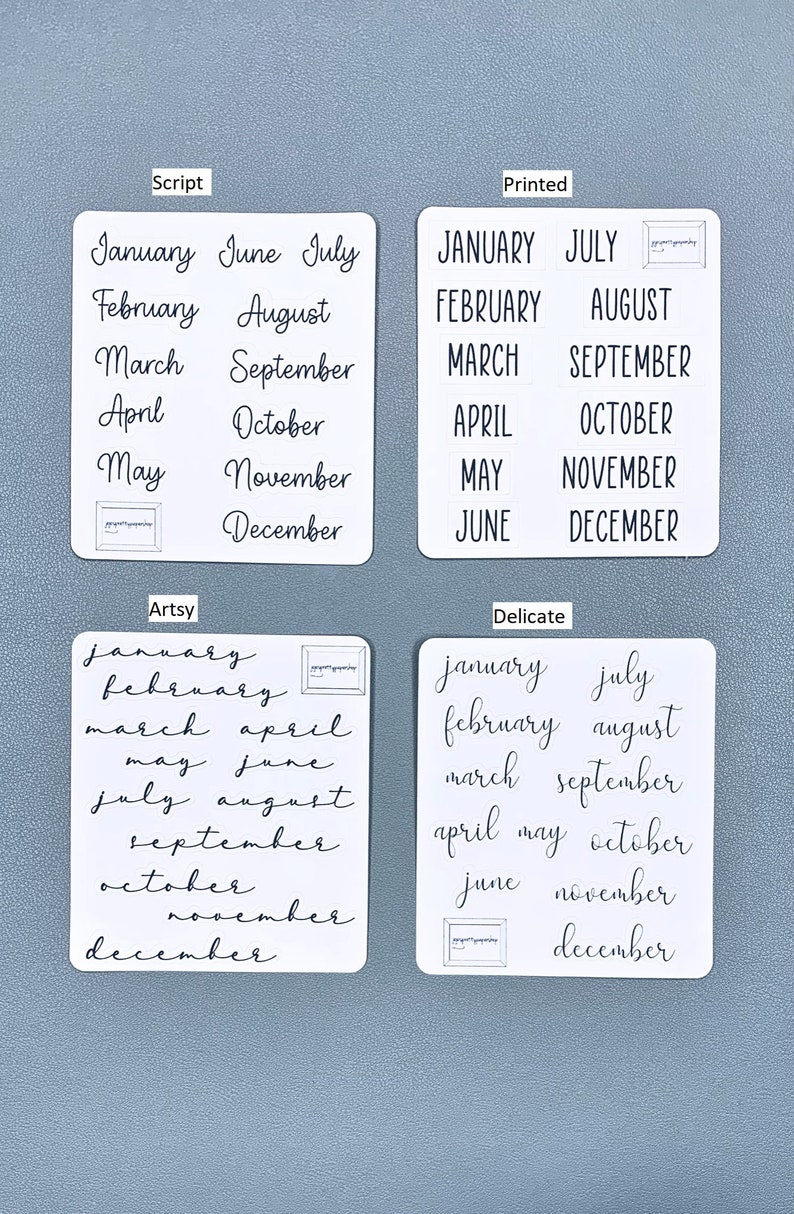 Script
January June July
February August
March September
April October
May November
December
Printed
JANUARY JULY
FEBRUARY AUGUST
MARCH SEPTEMBER
APRIL OCTOBER
MAY NOVEMBER
JUNE DECEMBER
Artsy
january
february
march april
may june
july august
september
october
november
december
Delicate
january july
february august
march september
april may october
june november
december